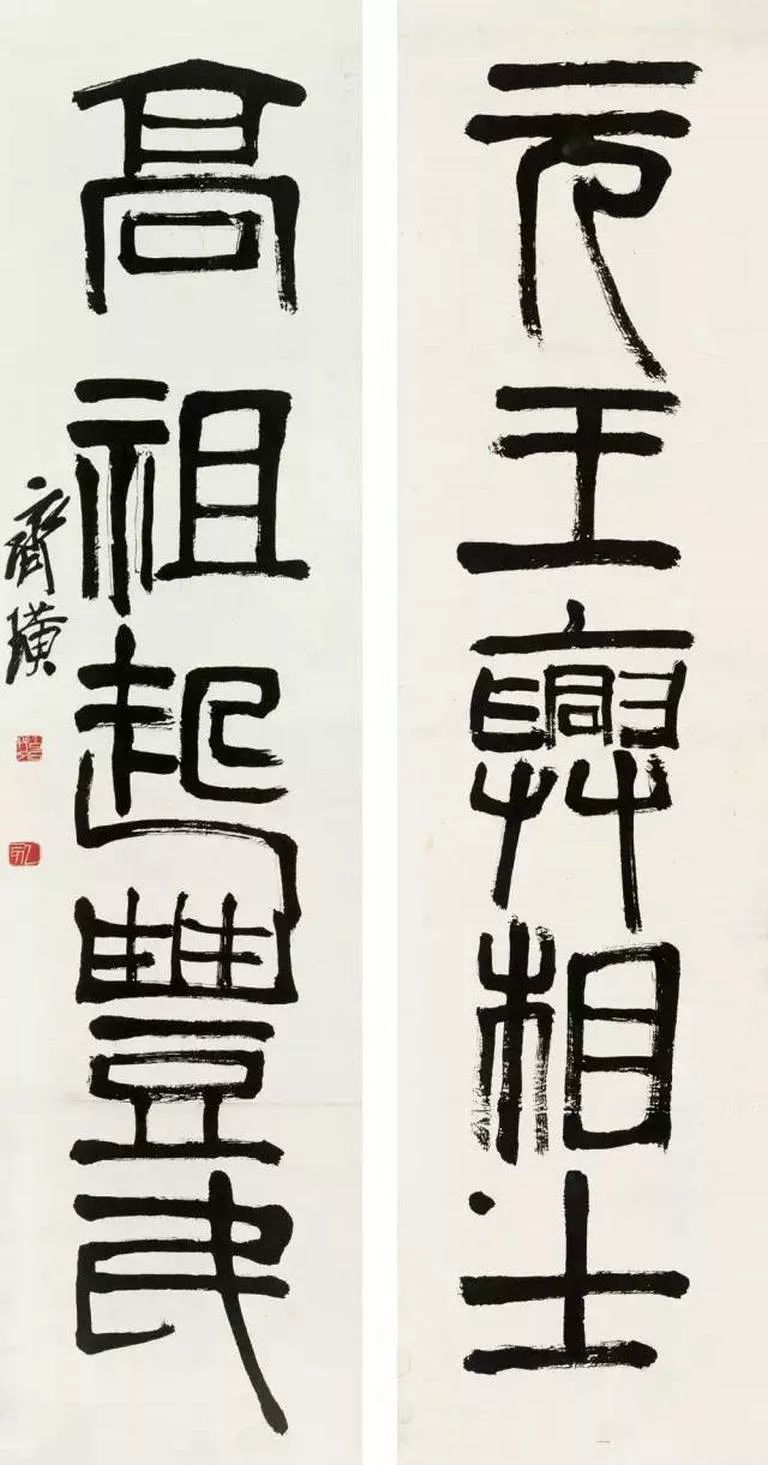 元王興相士
高祖起豐民
齊璜